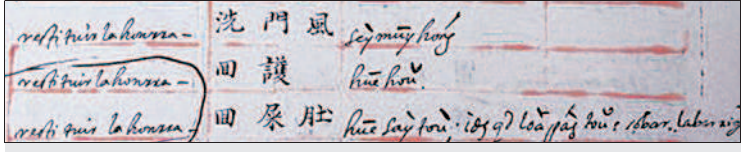 restituir la honrra - 洗 門 風 sèy mūy hong
restituir la honrra - 囬 護 hūe hoǔ.
restituir la honrra - 囬 屎 肚 hūe sày toù.